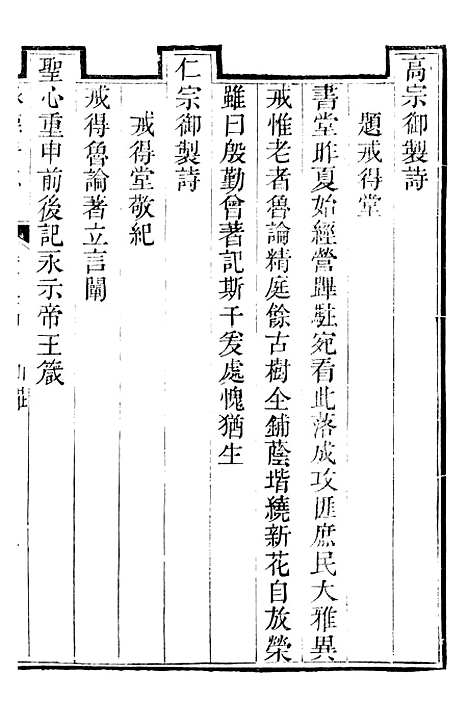 高宗御製詩
題戒得堂
書堂昨夏始經營蹕駐宛看此落成攻匪庶民大雅異
戒惟老者魯論精庭餘古樹全鋪蔭堦繞新花自放榮
雖曰殷勤曾著記斯干爰處愧猶生
仁宗御製詩
戒得堂敬紀
戒得魯論著立言闡
聖心重申前後記永示帝王箴